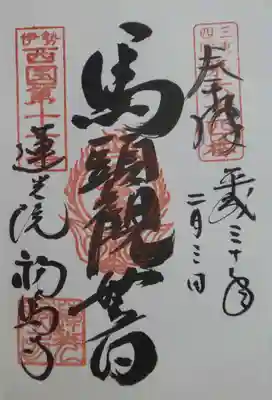 奉拝
平成三十年
二月三日
馬頭観世音
伊勢
西国第十
蓮光院
初馬寺